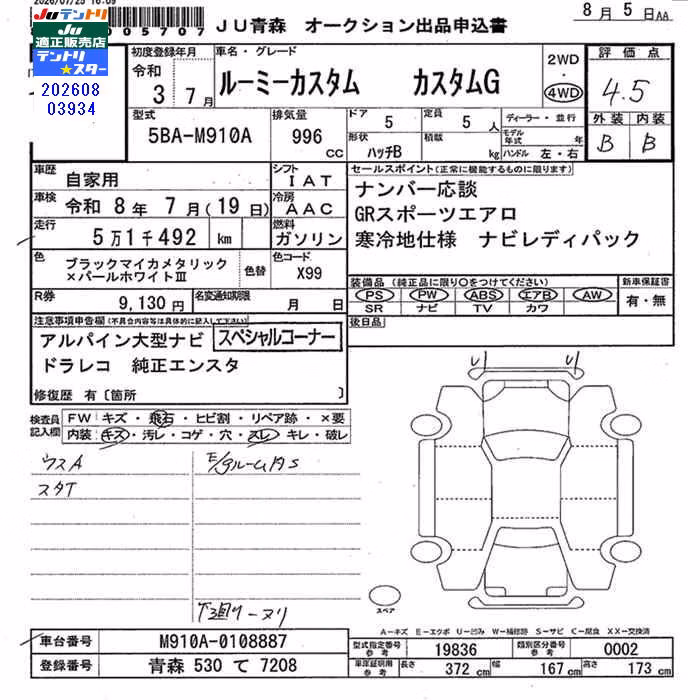 2026/07/25 16:09
Juテントリ
適正販売店
テントリ★スター
202608
03934
005707
JU青森 オークション出品申込書
8月5日AA
初度登録年月
令和
3 7月
車名・グレード
ルーミーカスタム カスタムG
2WD
・
4WD
評価点
4.5
外装 内装
B B
型式
5BA-M910A
排気量
996
cc
ドア 5
定員 5 人
形状 ハッチB
積載 kg
ディーラー・並行
モデル年式 年
ハンドル 左・右
車歴 自家用
シフト IAT
セールスポイント(正常に機能するものに限ります)
車検 令和 8年 7月(19日)
冷房 AAC
ナンバー応談
GRスポーツエアロ
寒冷地仕様 ナビレディパック
走行 5万1千492 km
燃料 ガソリン
色 ブラックマイカメタリック
×パールホワイトⅢ
色替
色コード X99
装備品(純正品に限り○をつけてください)
新車保証書
PS PW ABS エアB AW
SR ナビ TV カワ
有・無
R券 9,130円
名変通知期限 月 日
後日品
注意事項申告欄(不具合内容等は具体的に記入して下さい)
アルパイン大型ナビ スペシャルコーナー
ドラレコ 純正エンスタ
修復歴 有〔箇所 〕
検査員記入欄
FW キズ・飛石・ヒビ割・リペア跡・×要
内装:キズ・汚レ・コゲ・穴・スレ・キレ・破レ
ウスA
スタT
モ/グルーム内S
下廻リーヌリ
U U
スペア
A-キズ E-エクボ U-凹み W-補修跡 S-サビ C-腐食 XX-交換済
車台番号 M910A-0108887
型式指定番号 参考 19836
類別区分番号 参考 0002
登録番号 青森 530 て 7208
車庫証明用 参考 長さ 372 cm 幅 167 cm 高さ 173 cm